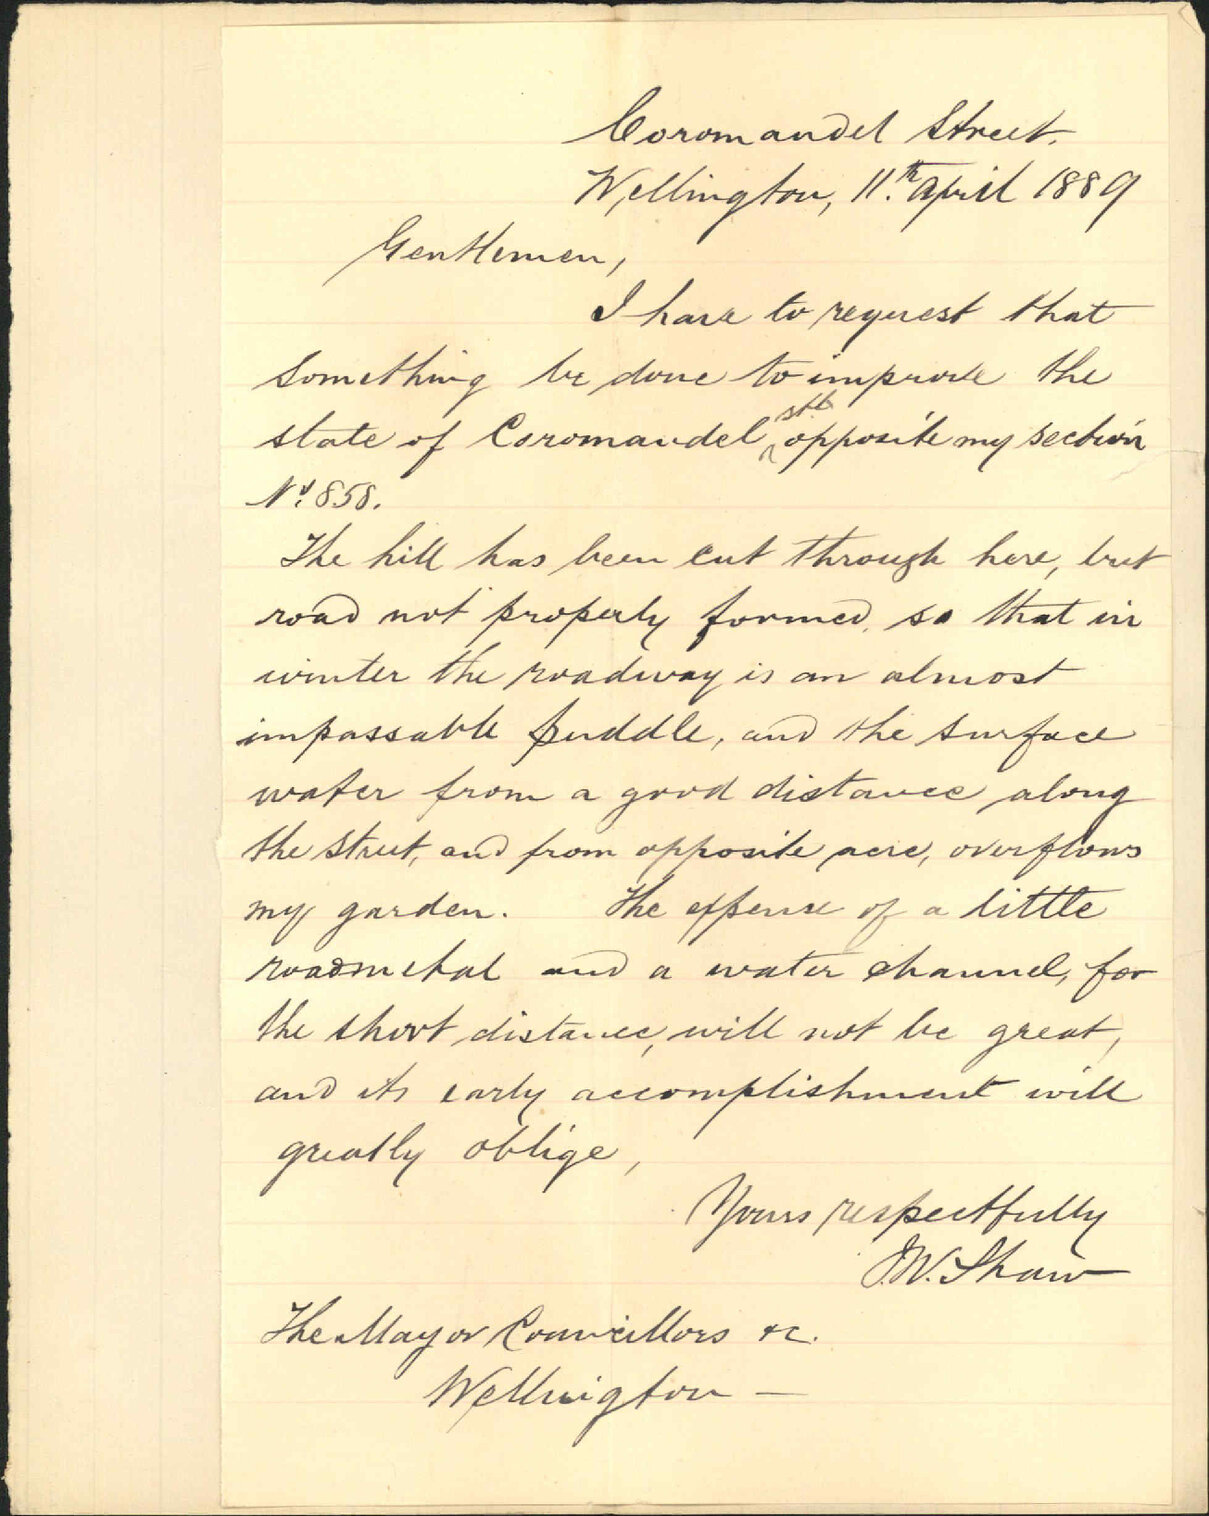 Coromandel Street.
Wellington, 11th. April 1889
Gentlemen,
I have to request that
something be done to improve the
state of Coromandel Stt opposite my section
No. 858.
The hill has been cut through here, but
road not properly formed, so that in
winter the roadway is an almost
impassable puddle, and the surface
water from a good distance along
the street, and from opposite acre, overflows
my garden. The expense of a little
roadmetal and a water channel, for
the short distance, will not be great,
and its early accomplishment will
greatly oblige,
Yours respectfully
J.W. Shaw
The Mayor Councillors &c.
Wellington —